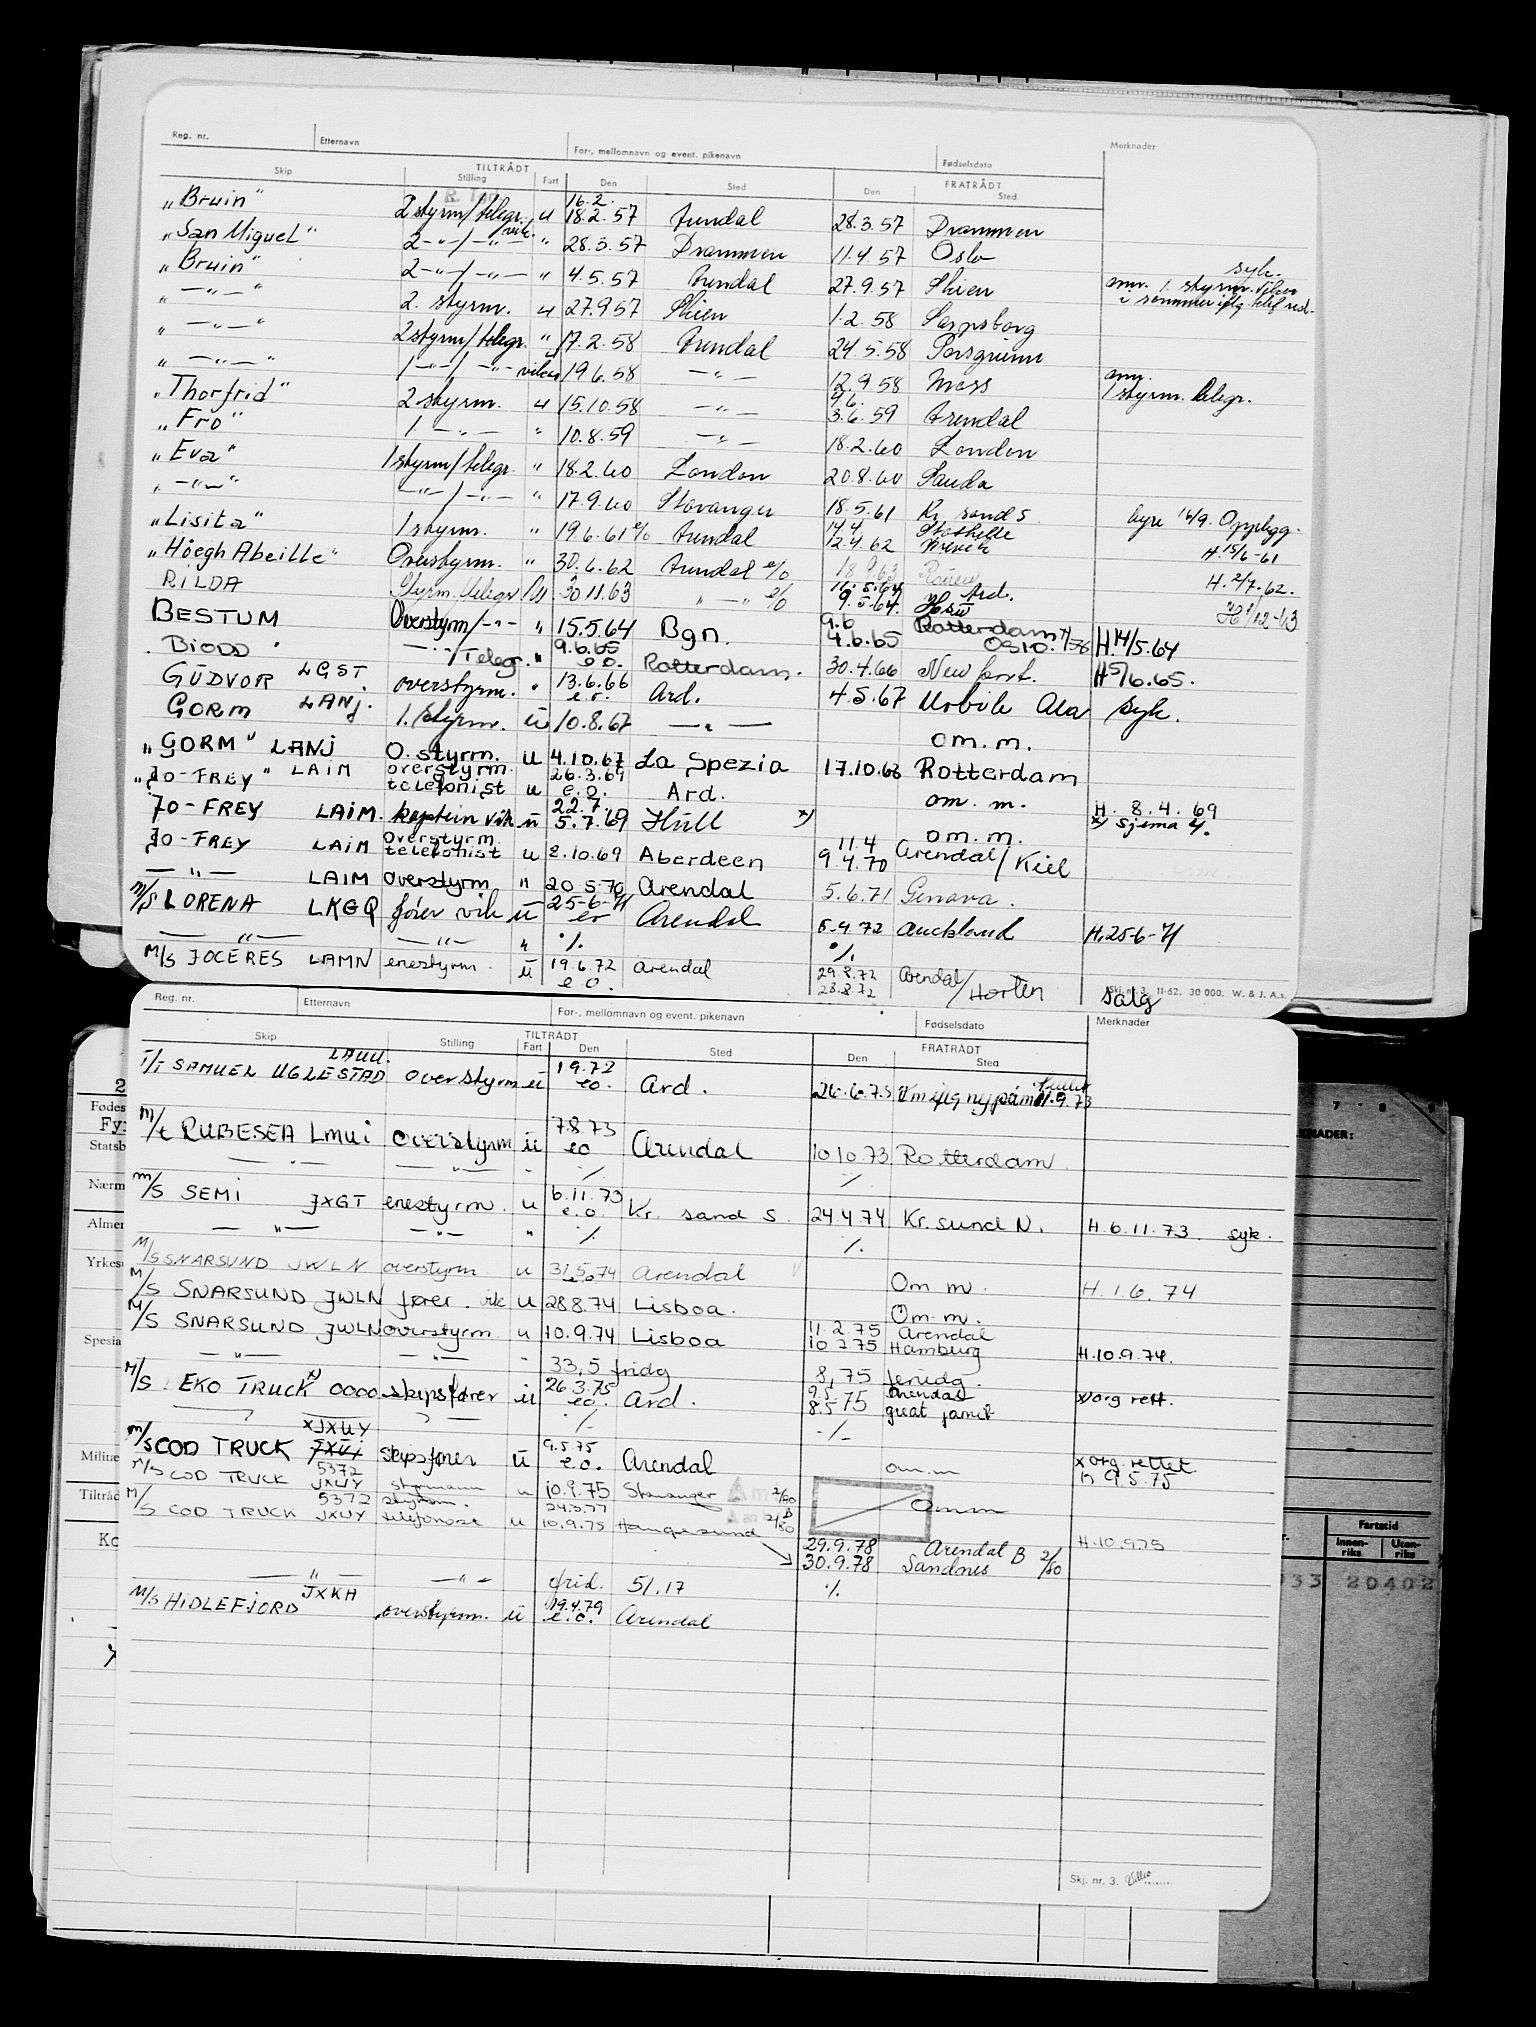 Reg. nr. Etternavn For-, mellomnavn og event. pikenavn Fødselsdato Merknader
TILTRÅDT FRATRÅDT
Skip Stilling Fart Den Sted Den Sted
16.2.
„Bruin" 2 styrm/telegr. u 18.2.57 Arendal 28.3.57 Drammen
vik.
„San Miguel" 2 -"-/-"- " 28.3.57 Drammen 11.4.57 Oslo
syk.
„Bruin" 2 -"-/-"- " 4.5.57 Arendal 27.9.57 Skien anm. 1. styrm.
„ -"- " 2. styrm. u 27.9.57 Skien 1.2.58 Sarpsborg
„ -"- " 2 styrm/telegr. " 17.2.58 Arendal 24.5.58 Porsgrunn
„ -"- " 1 -"-/-"- vikar " 19.6.58 -"- 12.9.58 Moss anm. 1 styrm. telegr.
9.6.
„Thorfrid" 2 styrm. u 15.10.58 -"- 3.6.59 Arendal
„Frö" 1. -"- " 10.8.59 -"- 18.2.60 London
„Eva" 1 styrm/telegr. " 18.2.60 London 20.8.60 Sauda
„ -"- " -"-/-"- " 17.9.60 Stavanger 18.5.61 Kr. sand S. 16/9. Oppbygg.
14.4
„Lisita" 1 styrm. " 19.6.61 e/o Arendal 12.4.62 Brevik H. 15/6-61
„Höegh Abeille" Overstyrm. " 30.6.62 Arendal e/o 18.9.63 Rouen H. 2/7.62.
11.5.64 Ard.
RILDA Styrm./telegr u 30.11.63 " -"- e/o 9.5.64. H 1/12-63
9.6 Rotterdam
BESTUM Overstyrm/-"- " 15.5.64 Bgn. 4.6.65 Oslo. H. 14/5.64
9.6.65
BIODD " -"-/Telegr. " e.o. Rotterdam. 30.4.66 New port. H 5/6.65.
GUDVOR LGST overstyrm. " 13.6.66 e.o. Ard. 4.5.67 Mobile Ala syk.
GORM LANJ. 1. styrm. u 10.8.67 -"- om. m.
„GORM" LANJ O. styrm. u 4.10.67 La Spezia 17.10.68 Rotterdam
„JO-FREY" LAIM overstyrm. telefonist u 26.3.69 e.o. Ard. om. m. H. 8.4.69
JO-FREY LAIM. kaptein vik u 22.7. 5.7.69 Hull x) om. m. x) Sjema 4.
JO-FREY LAIM overstyrm. telefonist u 2.10.69 Aberdeen 11.4 9.4.70 Arendal/Kiel
-"- LAIM overstyrm " 20.5.70 Arendal 5.6.71 Genova.
M/S LORENA LKGQ fører vik u 25-6-71 eo Arendal 5.4.72 Auckland H. 25-6-71
-"- -"- " ./. ./.
M/S JOCERES LAMN enestyrm. u 19.6.72 e.o. Arendal 29.8.72 28.8.72 Arendal/Horten salg
Skj. nr. 3. 11-62. 30 000. W. & J. A.s.
Reg. nr. Etternavn For-, mellomnavn og event. pikenavn Fødselsdato Merknader
TILTRÅDT FRATRÅDT
Skip Stilling Fart Den Sted Den Sted
T/T SAMUEL UGLESTAD LAUU. overstyrm u 1.9.72 eo. Ard. 26.6.73
M/T RUBESEA LMUI overstyrm u 7.8.73 eo Arendal 10.10.73 Rotterdam
-"- -"- " ./. ./.
M/S SEMI JXGT enestyrm. u 6.11.73 e.o. Kr. sand S. 24.4.74 Kr. sund N. H. 6.11.73. syk.
-"- -"- " ./. ./.
M/S SNARSUND JWLN overstyrm u 31.5.74 eo Arendal Om m. H. 1.6.74
M/S SNARSUND JWLN fører. vik u 28.8.74 Lisboa. Om m.
M/S SNARSUND JWLN overstyrm u 10.9.74 Lisboa 11.2.75 Arendal 10.2.75 Hamburg H. 10.9.74.
-"- -"- " 33,5 fridg 8,75 feriedg.
M/S EKO TRUCK x) OOOO skipsfører u 26.3.75 eo. Ard. 9.5.75 Arendal 8.5 great yarmt x) org rett.
-"- -"- ./. ./.
M/S COD TRUCK xJXUY skipsfører u 9.5.75 e.o. Arendal om. m x org. rettet. H 9.5.75
M/S COD TRUCK 5372 JXUY styrmann u 10.9.75 Stavanger Om m
M/S COD TRUCK 5372 JXUY styrm. telefonist u 24.3.77 10.9.75 Haugesund H. 10.9.75
29.9.78 Arendal
30.9.78 Sandnes B 2/80
-"- -"- frid. 51.17 ./.
M/S HIDLEFJORD JXKA overstyrm. u 19.4.79 e.o. Arendal
Skj. nr. 3.
Fødse
Statsb
Nærm
Almer
Yrkes
Spesia
Militæ
Tiltråd
Ko
7 - 8 - 9
KNADER:
Fartstid
Innen-riks Uten-riks
33 20402